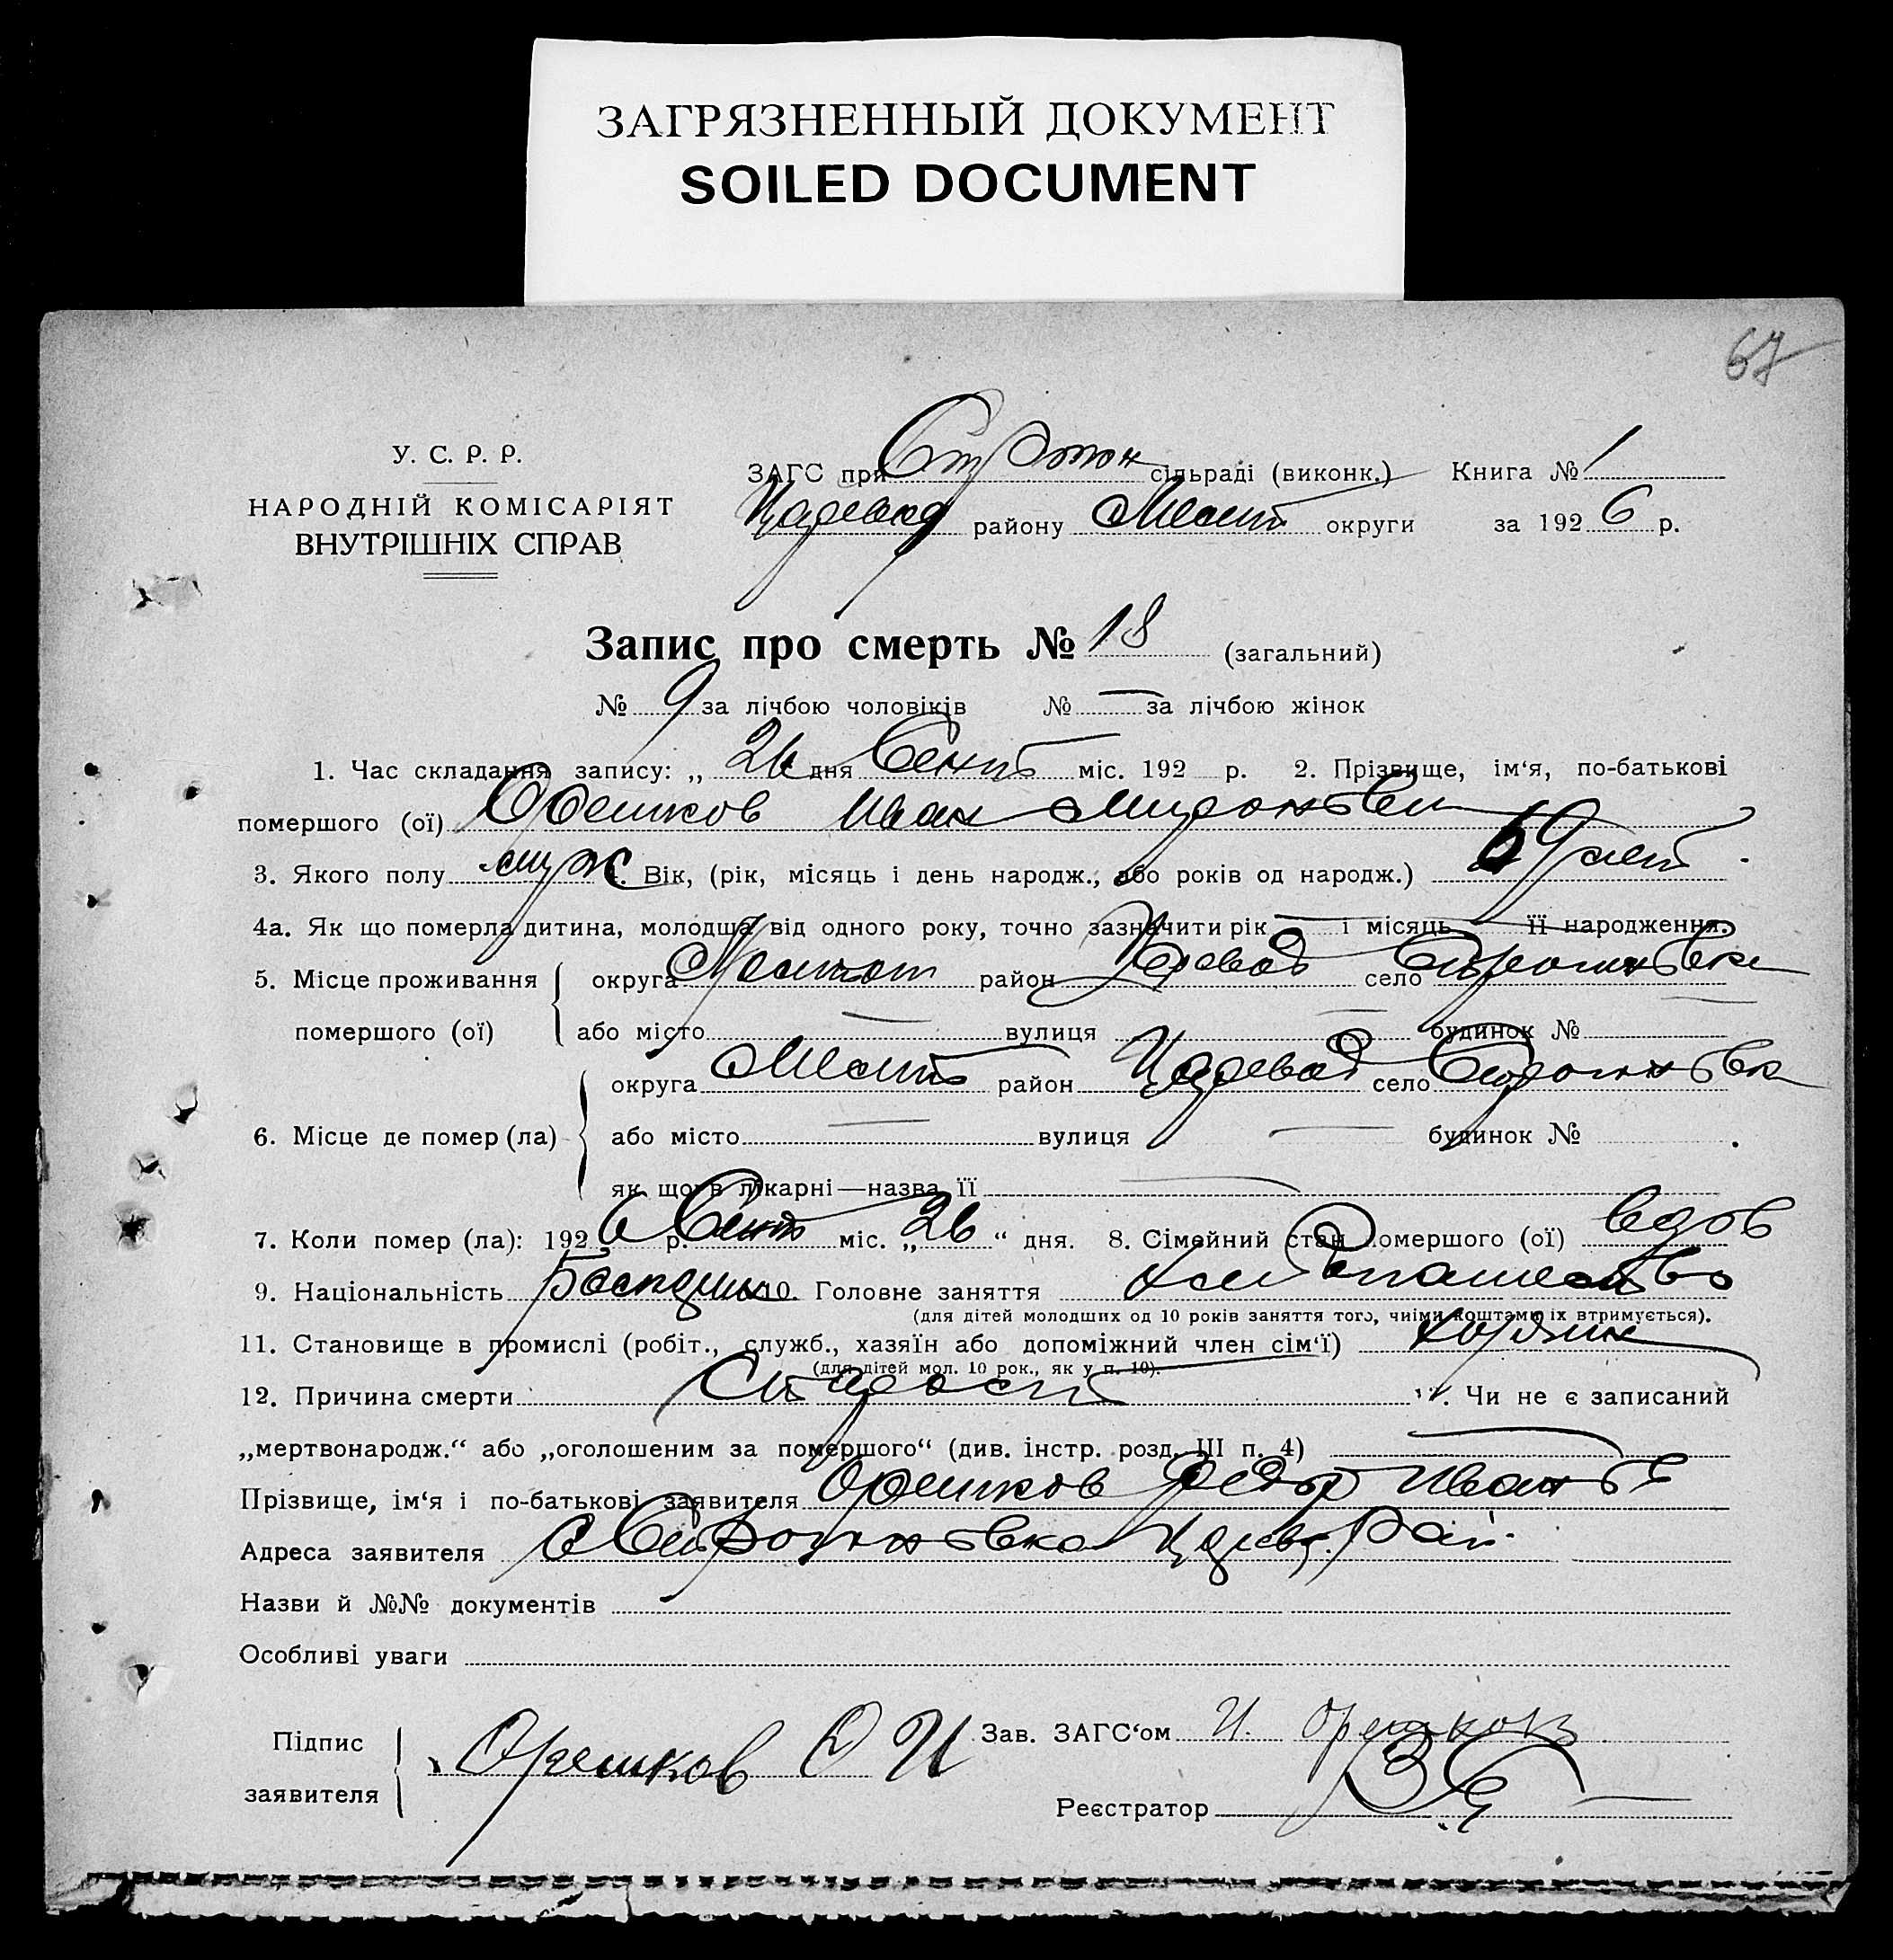 ЗАГРЯЗНЕННЫЙ ДОКУМЕНТ
SOILED DOCUMENT
67
У. С. Р. Р.
НАРОДНІЙ КОМІСАРІЯТ
ВНУТРІШНІХ СПРАВ
ЗАГС при сільраді (виконк.) Книга № 1
району Мелит округи за 1926 р.
Запис про смерть № 18 (загальний)
№ 9 за лічбою чоловіків № — за лічбою жінок
1. Час складання запису: „ 26 дня Сент міс. 192 р. 2. Прізвище, ім‘я, по-батькові
помершого (ої) Орешков Иван
3. Якого полу муж 4. Вік, (рік, місяць і день народж., або років од народж.) 69 лет
4а. Як що померла дитина, молодша від одного року, точно зазначити рік — і місяць — її народження.
5. Місце проживання округа район Царевод село Строгановка
помершого (ої) або місто — вулиця — будинок № —
округа Мелит район Царевод село Строгановка
6. Місце де помер (ла) або місто — вулиця — будинок №
як що в лікарні—назва її —
7. Коли помер (ла): 1926 р. Сент міс. „ 26 “ дня. 8. Сімейний стан помершого (ої) вдов
9. Національність 10. Головне заняття хлебопашество
(для дітей молодших од 10 років заняття того, чиїми коштами їх втримується).
11. Становище в промислі (робіт., служб., хазяїн або допоміжний член сім‘ї)
(для дітей мол. 10 рок., як у п. 10).
12. Причина смерти Старост Чи не є записаний
„мертвонародж.“ або „оголошеним за помершого“ (див. інстр. розд. III п. 4) —
Прізвище, ім‘я і по-батькові заявителя Орешков Федор Иванов
Адреса заявителя с Строгановка Рай.
Назви й №№ документів
Особливі уваги
Підпис заявителя Орешков Ф И Зав. ЗАГС‘ом И. Орешков
Реєстратор